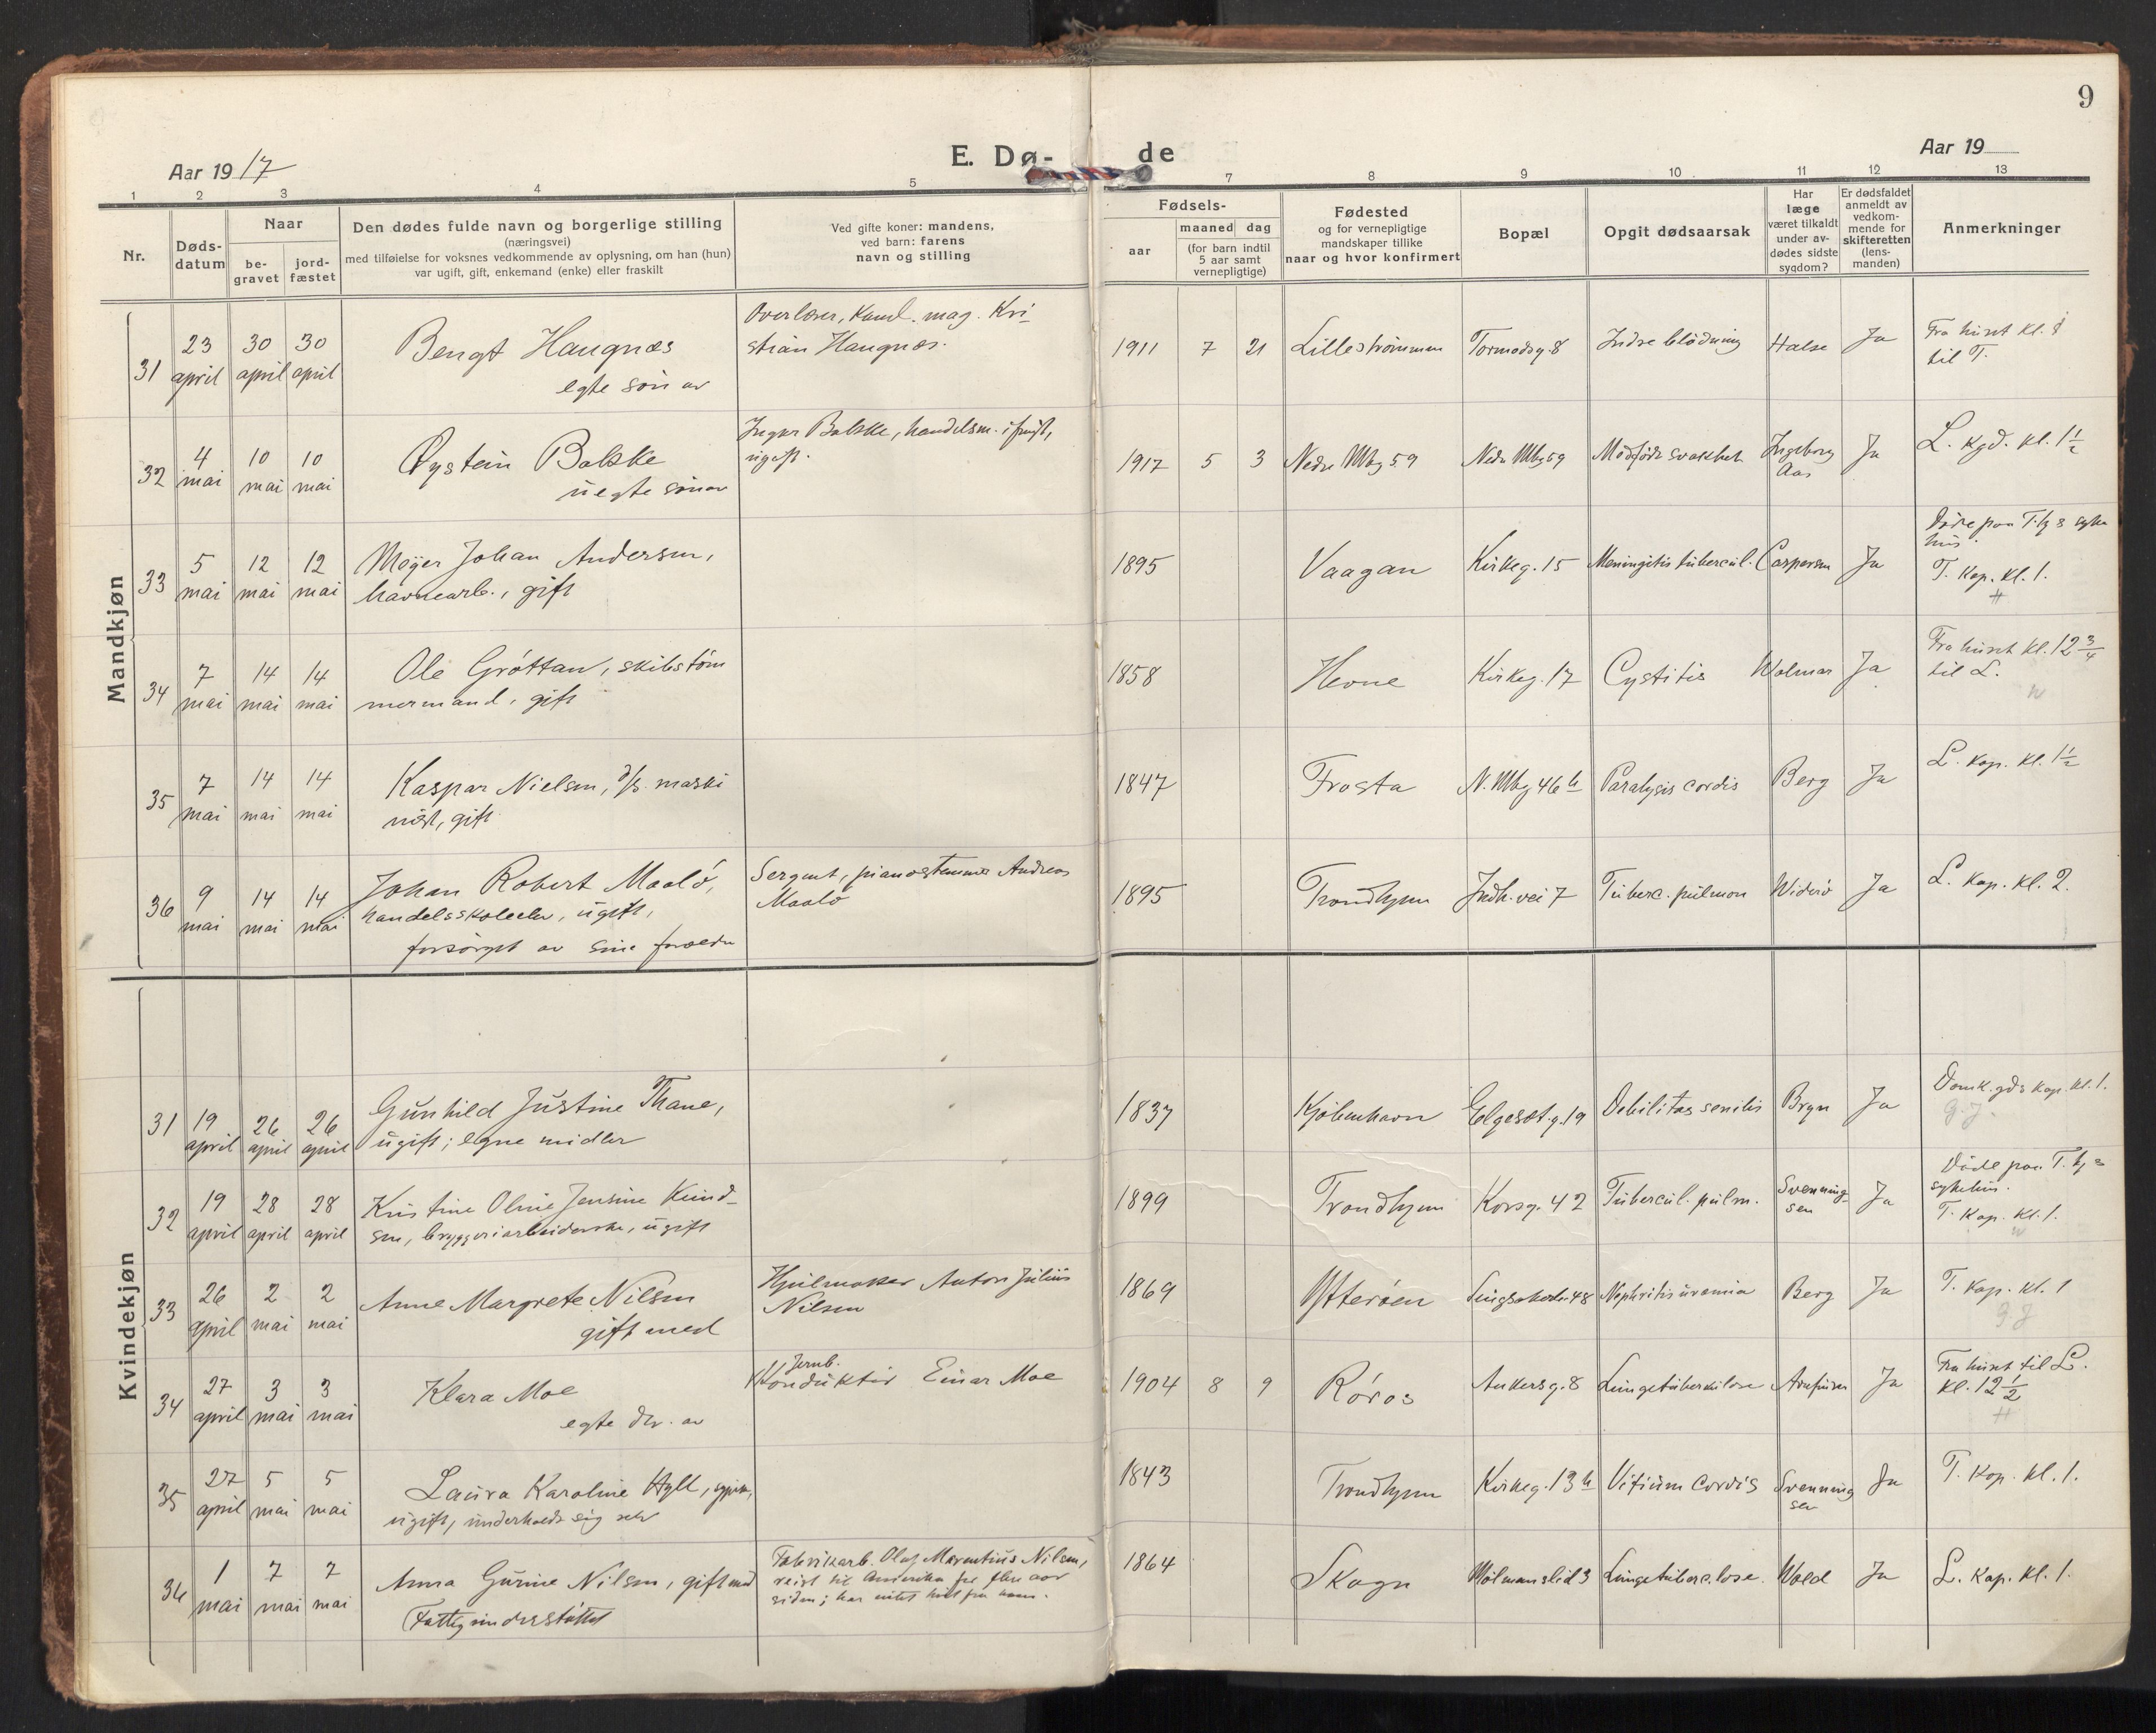 9
Aar 1917
E. Dø-
de
Aar 19
1 2 3 4 5 7 8 9 10 11 12 13
Nr.
Døds-
datum
Naar
be-
gravet
jord-
fæstet
Den dødes fulde navn og borgerlige stilling
(næringsvei)
med tilføielse for voksnes vedkommende av oplysning, om han (hun)
var ugift, gift, enkemand (enke) eller fraskilt
Ved gifte koner: mandens,
ved barn: farens
navn og stilling
Fødsels-
aar
maaned dag
(for barn indtil
5 aar samt
vernepligtige)
Fødested
og for vernepligtige
mandskaper tillike
naar og hvor konfirmert
Bopæl
Opgit dødsaarsak
Har
læge
været tilkaldt
under av-
dødes sidste
sygdom?
Er dødsfaldet
anmeldt av
vedkom-
mende for
skifteretten
(lens-
manden)
Anmerkninger
Mandkjøn
31 23 april 30 april 30 april
Bengt Haugnæs
egte søn av
Overlærer, Kand. mag. Kri-
stian Haugnæs.
1911 7 21 Lillestrømmen Tormodsg. 8 Indre blödning Halse Ja
Fra huset kl.
til T.
32 4 mai 10 mai 10 mai
Øystein Balske
uegte søn av
Balske, handelsm.
ugift.
1917 5 3 Nedre Mbg 59 Nedre Mbg 59 Medfødt svakhet Ingeborg
Aas
Ja
L. Kgd. kl. 1½
33 5 mai 12 mai 12 mai
Møyer Johan Andersen,
havnearb., gift
1895 Vaagan Kirkeg. 15 Meningitis tubercul. Caspersen Ja
Døde paa T.hj.s syke
hus.
T. Kap. kl. 1.
34 7 mai 14 mai 14 mai
Ole Gröttan, skibstöm
mermand, gift
1858 Hevne Kirkeg. 17 Cystitis Wolmar Ja
Fra huset kl. 12¾
til L.
35 7 mai 14 mai 14 mai
Kaspar Nielsen, d/s. maski
nist, gift
1847 Frosta N. Mbg 46 b Paralysis cordis Berg Ja
L. Kap. kl. 1½
36 9 mai 14 mai 14 mai
Johan Robert Maalö,
handelsskoleelev, ugift,
forsörget av sine forældre
Sergent, pianostemmer Andreas
Maalö
1895 Trondhjem Indh. vei 7 Tuberc. pulmon Widerö Ja
L. Kap. kl. 2.
Kvindekjøn
31 19 april 26 april 26 april
Gunhild Justine Thane,
ugift; egne midler
1837 Kjöbenhavn Elgesæt.g. 19 Debilitas senilis Bryn Ja
Domk. gds kap. kl. 1.
32 19 april 28 april 28 april
Kristine Oline Jensine Knud-
sen, bryggeriarbeiderske, ugift
1899 Trondhjem Korsg. 42 Tubercul. pulm. Svenning-
sen
Ja
Døde paa T. hj.s
sykehus.
T. Kap. kl. 1.
33 26 april 2 mai 2 mai
Anne Margrete Nilsen
gift med
Hjulmaker Anton Julius
Nilsen
1869 Ytterøen Singsakerbk. 48 Nephritis uræmia Berg Ja
T. Kap. kl. 1
34 27 april 3 mai 3 mai
Klara Moe
egte dtr. av
Jernb.
Konduktør Einar Moe
1904 8 9 Röros Ankersg. 8 Lungetuberkulose Ja
Fra huset til L.
kl. 12½
35 27 april 5 mai 5 mai
Laura Karoline Hyll, sypike,
ugift, underholdt sig selv
1843 Trondhjem Kirkeg. 13 b Vitium cordis Svenning
sen
Ja
T. Kap. kl. 1.
36 1 mai 7 mai 7 mai
Anna Gurine Nilsen, gift med
Fattigunderstöttet
Fabrikarb. Olaf Marentius Nilsen,
reist til Amerika for flere aar
siden; har intet hørt fra ham.
1864 Skogn Wolmanslid 3 Lungetuberc.lose. Wold Ja
L. Kap. kl. 1.